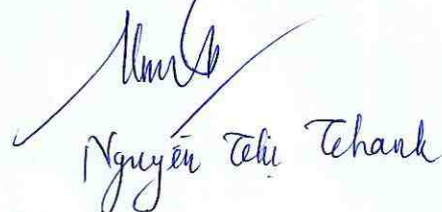 Nguyễn Thị Thanh